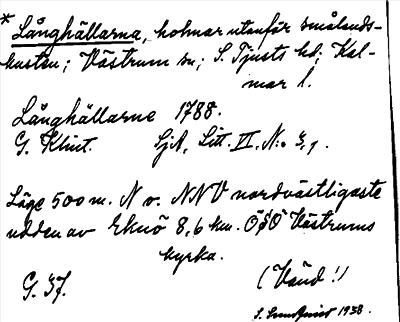 * Långhällarna, holmar utanför smålands-
kusten; Västrum sn; S. Tjusts hd; Kal-
mar l.
Långhällarne 1788.
G. Klint. SjA, Litt. VI, N:o 3,1.
Läge 500 m. N o. NNV nordvästligaste
udden av Eknö 8,6 km. OSO Västrums
kyrka.
G. 37. (Vänd!)
1938.